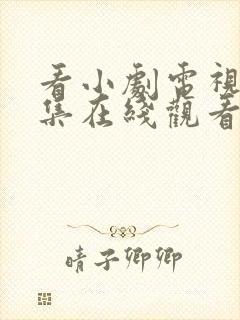 看小劇電視
集在綫觀看
晴子卿卿